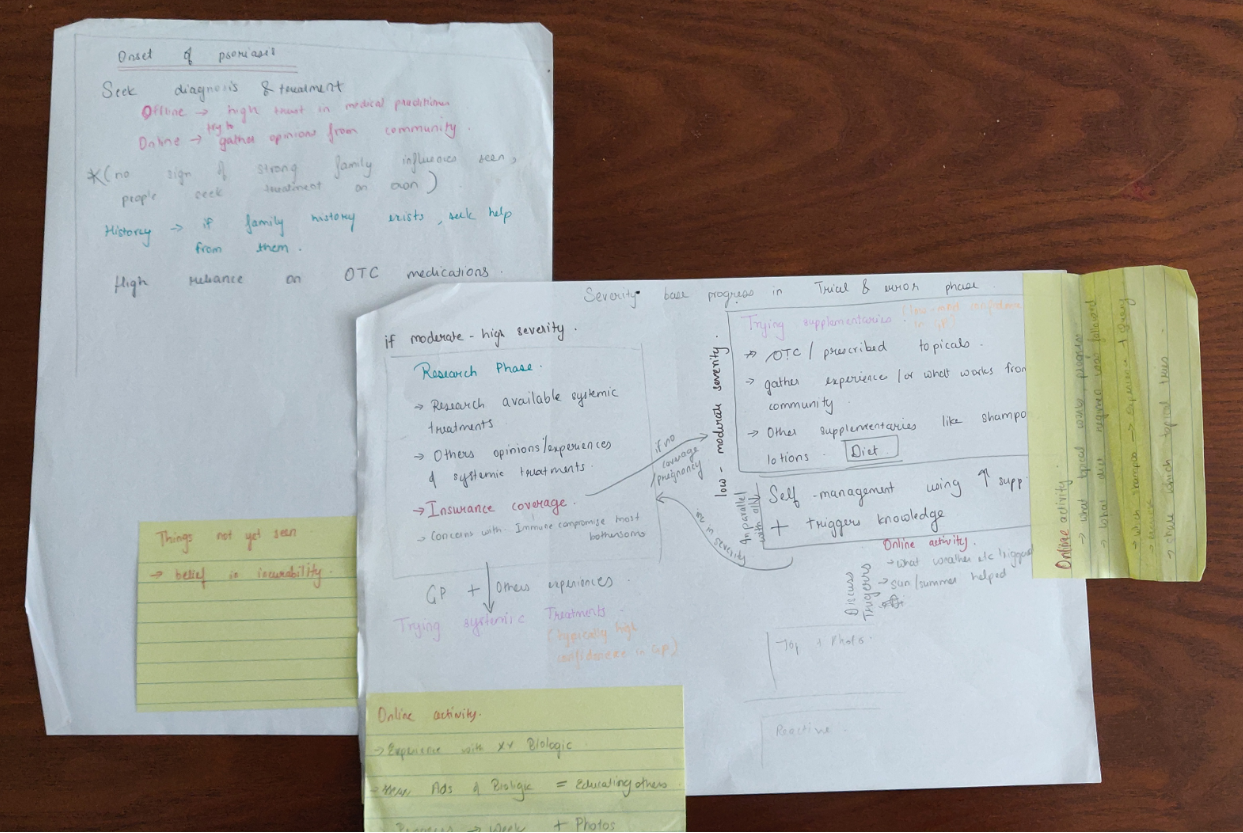 Onset of psoriasis
Seek diagnosis & treatment
Offline → high trust in medical practitioner
Online → try to gather opinions from community.
*(no sign of strong family influence seen,
people seek treatment on own)
History → if family history exists, seek help
from them.
High reliance on OTC medications.
Things not yet seen
→ belief in incurability.
Severity base progress in Trial & error phase.
if moderate - high severity.
Research Phase.
→ Research available systemic
treatments
→ Others opinions/experiences
of systemic treatments.
→ Insurance coverage.
→ Concerns with Immune compromise most
bothersome
if no
coverage
/pregnancy
GP + Others experiences
Trying systemic Treatments.
(typically high
confidence in GP)
Online activity.
→ Experience with xy Biologic
Ads of Biologic = Educating others
Progress → week + Photos
low - moderate severity.
Trying supplementaries
in GP)
→ OTC / prescribed topicals.
→ gather experience / or what works from
community
→ Other supplementaries like shampo
lotions. Diet.
In parallel
with all
Self-management using ↑ supp
+ triggers knowledge
in severity
Online activity.
→ what weather etc triggered
→ sun/summer helped
Discuss
Triggers
+ Photos.
Reactive.
Online activity
→ what topical works progress
→ what diet regimen was followed
→ which shampoo → experience +
→ share which topical